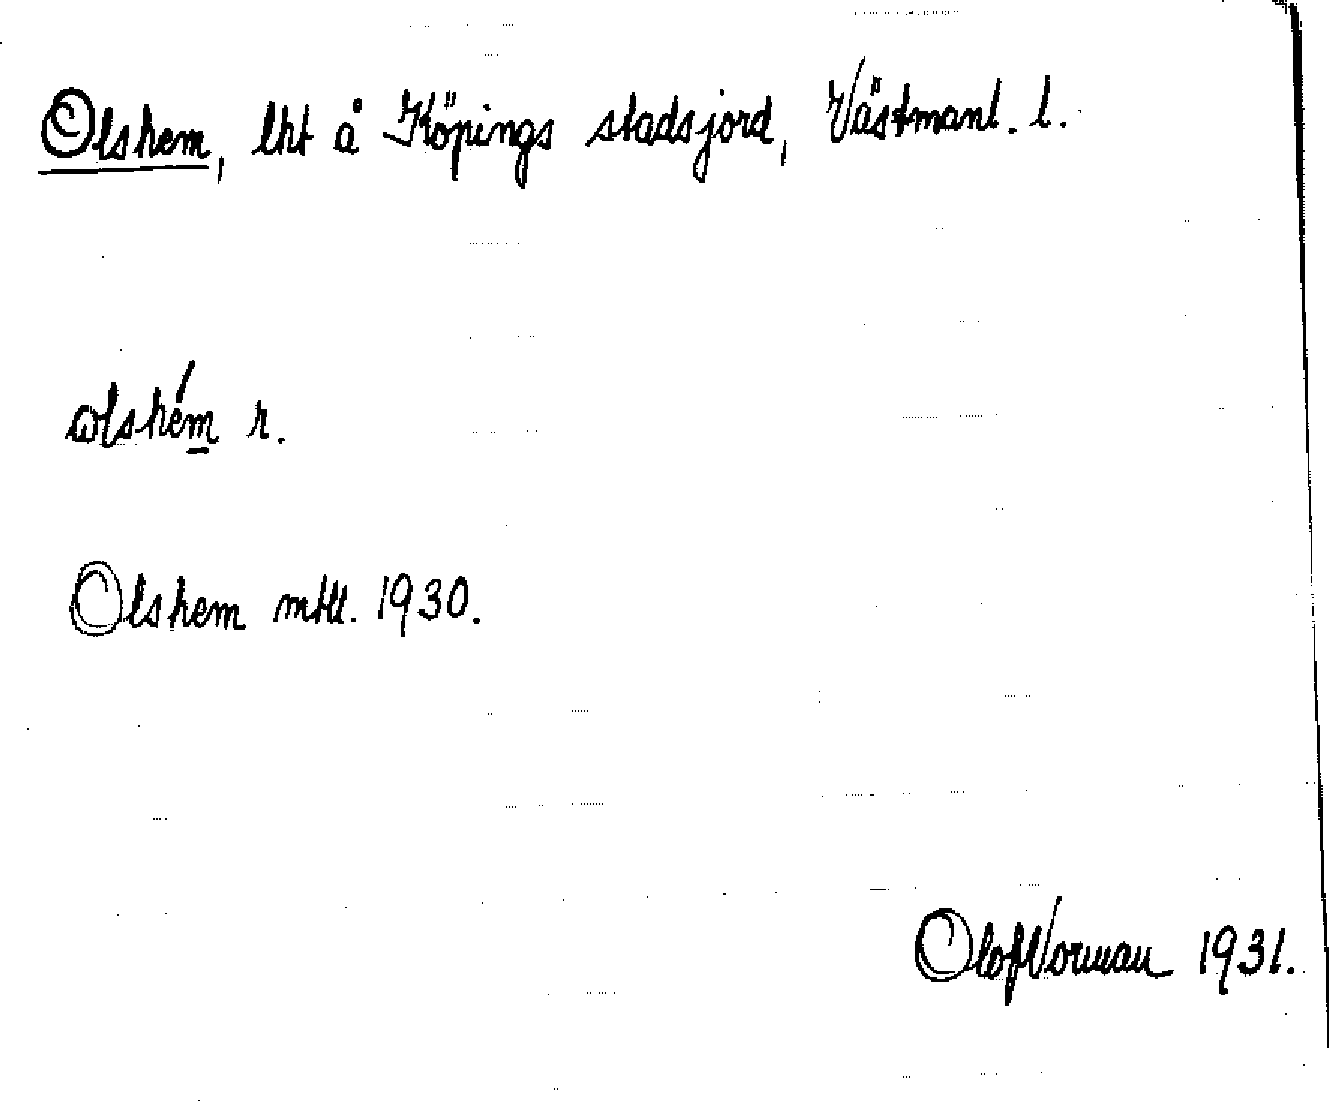 Olshem, lht å Köpings stadsjord, Västmanl. l.
ωlshém r.
Olshem mtll. 1930.
Olof Norman 1931.